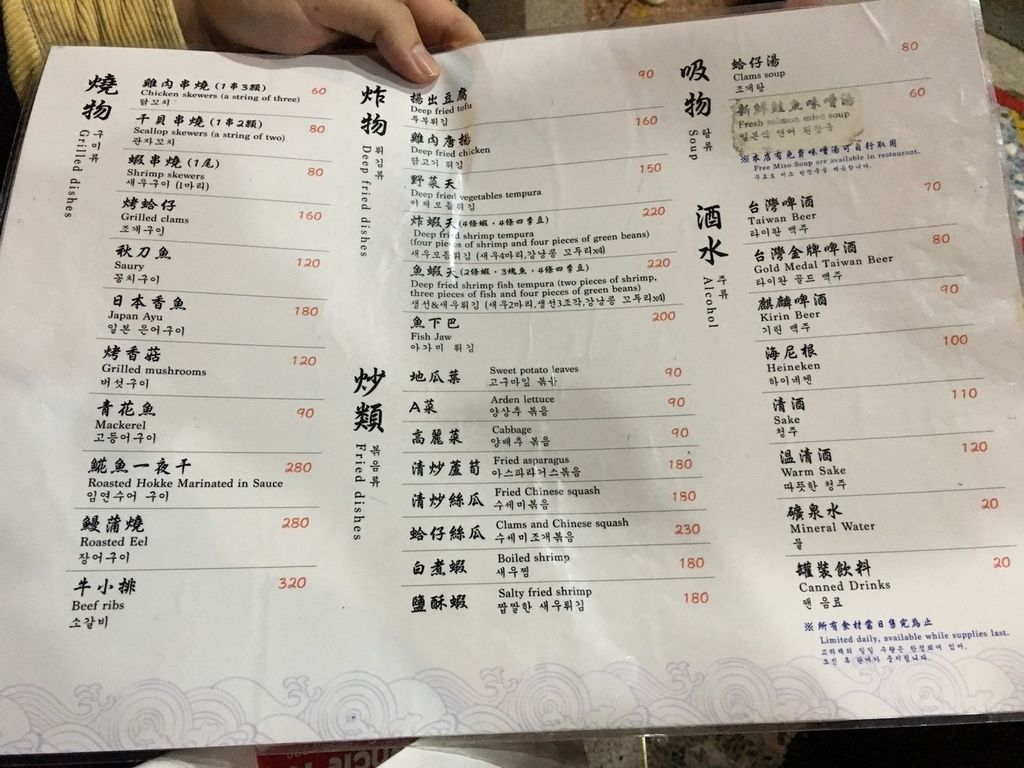 燒物
구이류
Grilled dishes
雞肉串燒 (1串3顆) 60
Chicken skewers (a string of three)
닭꼬치
干貝串燒 (1串2顆) 80
Scallop skewers (a string of two)
관자꼬치
蝦串燒 (1尾) 80
Shrimp skewers
새우구이 (1마리)
烤蛤仔 160
Grilled clams
조개구이
秋刀魚 120
Saury
꽁치구이
日本香魚 180
Japan Ayu
일본 은어구이
烤香菇 120
Grilled mushrooms
버섯구이
青花魚 90
Mackerel
고등어구이
鯱魚一夜干 280
Roasted Hokke Marinated in Sauce
임연수어 구이
鰻蒲燒 280
Roasted Eel
장어구이
牛小排 320
Beef ribs
소갈비
炸物
튀김류
Deep fried dishes
揚出豆腐 90
Deep fried tofu
두부튀김
雞肉唐揚 160
Deep fried chicken
닭고기 튀김
野菜天 150
Deep fried vegetables tempura
야채모듬튀김
炸蝦天 (4條蝦，4條四季豆) 220
Deep fried shrimp tempura
(four pieces of shrimp and four pieces of green beans)
새우모듬튀김 (새우4마리,강낭콩 꼬투리x4)
魚蝦天 (2條蝦，3塊魚，4條四季豆) 220
Deep fried shrimp fish tempura (two pieces of shrimp,
three pieces of fish and four pieces of green beans)
생선&새우튀김 (새우2마리,생선3조각,강낭콩 꼬투리x4)
魚下巴 200
Fish Jaw
아가미 튀김
炒類
볶음류
Fried dishes
地瓜葉 Sweet potato leaves 90
고구마잎 볶음
A菜 Arden lettuce 90
양상추 볶음
高麗菜 Cabbage 90
양배추 볶음
清炒蘆筍 Fried asparagus 180
아스파라거스볶음
清炒絲瓜 Fried Chinese squash 180
수세미볶음
蛤仔絲瓜 Clams and Chinese squash 230
수세미조개볶음
白煮蝦 Boiled shrimp 180
새우찜
鹽酥蝦 Salty fried shrimp 180
짭짤한 새우튀김
吸物
탕류
Soup
蛤仔湯 80
Clams soup
조개탕
新鮮鮭魚味噌湯 60
Fresh salmon miso soup
일본식 연어 된장국
※本店有免費味噌湯可自行取用
Free Miso Soup are available in restaurant.
酒水
주류
Alcohol
台灣啤酒 70
Taiwan Beer
타이완 맥주
台灣金牌啤酒 80
Gold Medal Taiwan Beer
타이완 골드 맥주
麒麟啤酒 90
Kirin Beer
기린 맥주
海尼根 100
Heineken
하이네켄
清酒 110
Sake
청주
溫清酒 120
Warm Sake
따뜻한 청주
礦泉水 20
Mineral Water
물
罐裝飲料 20
Canned Drinks
캔 음료
※所有食材當日售完為止
Limited daily, available while supplies last.